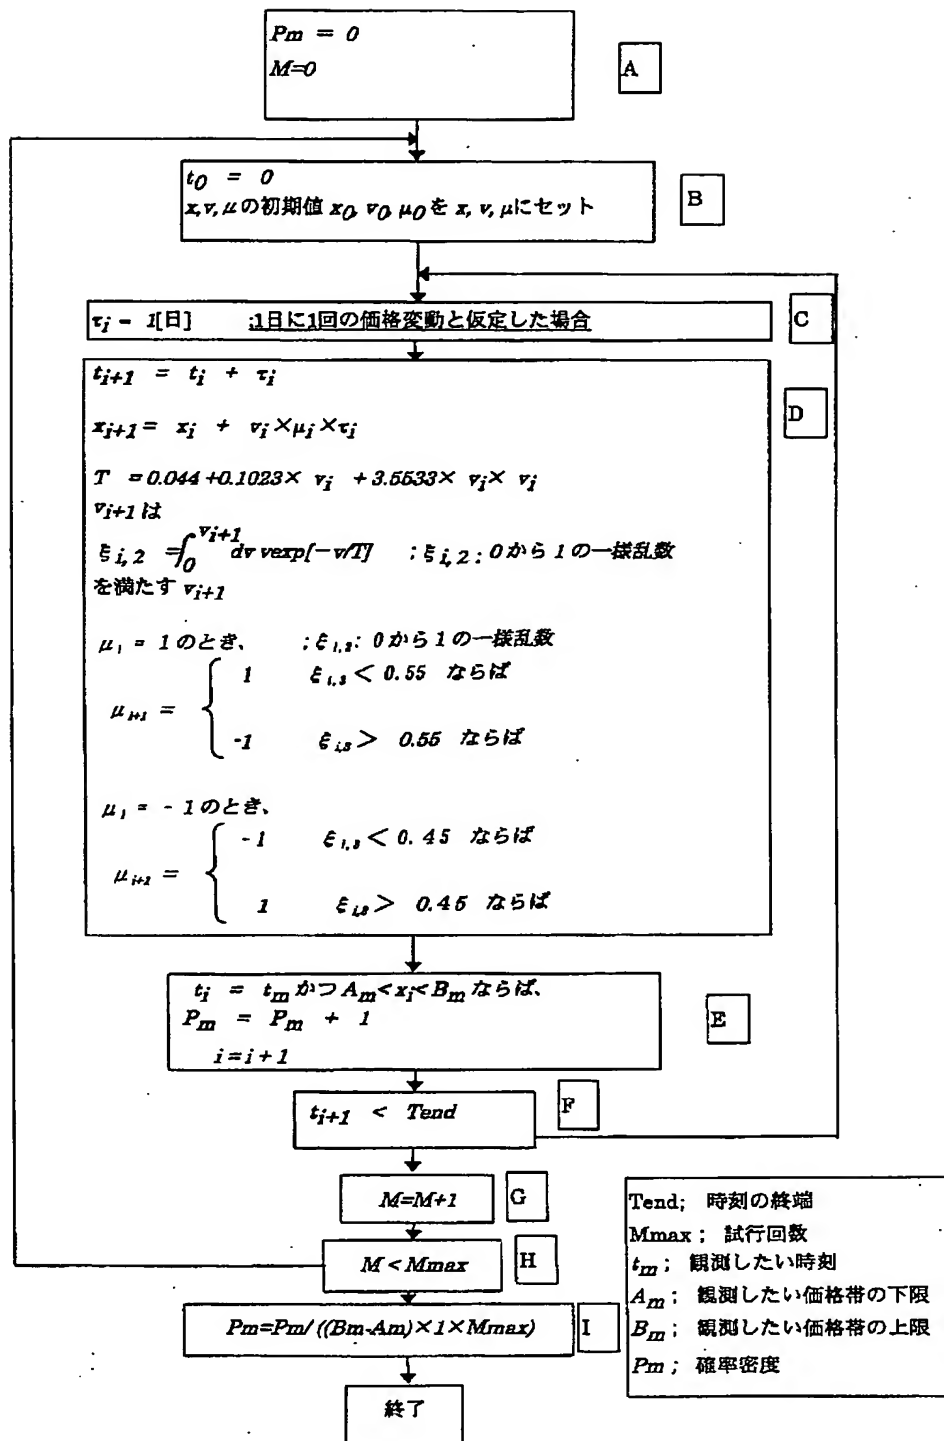 Pm = 0
M=0
A
t0 = 0
x,v,μの初期値 x0, v0, μ0を x, v, μにセット
B
τi = 1[日] ;1日に1回の価格変動と仮定した場合
C
ti+1 = ti + τi
D
xi+1 = xi + vi×μi×τi
T =0.044+0.1023× vi +3.5533× vi× vi
vi+1は
ξi,2 =∫0^vi+1 dv vexp[-v/T] ;ξi,2: 0から1の一様乱数
を満たす vi+1
μi = 1のとき、 ;ξi,3: 0から1の一様乱数
1 ξi,3 < 0.55 ならば
μi+1 = {
-1 ξi,3 > 0.55 ならば
μi = - 1のとき、
-1 ξi,3 < 0.45 ならば
μi+1 = {
1 ξi,3 > 0.45 ならば
ti = tmかつAm<xi<Bmならば、
Pm = Pm + 1
i=i+1
E
ti+1 < Tend
F
M=M+1
G
M<Mmax
H
Pm=Pm/((Bm-Am)×1×Mmax)
I
終了
Tend; 時刻の終端
Mmax; 試行回数
tm; 観測したい時刻
Am; 観測したい価格帯の下限
Bm; 観測したい価格帯の上限
Pm; 確率密度